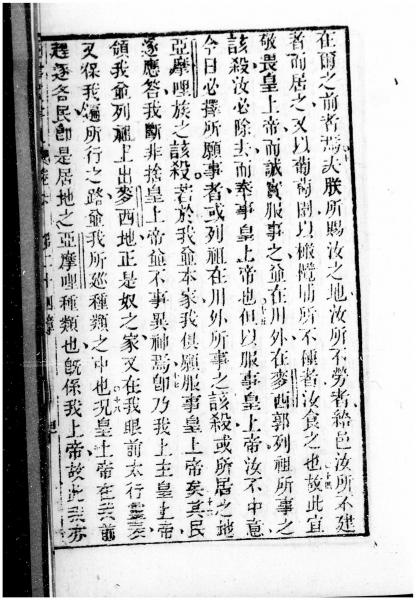 在爾之前者焉夫朕所賜汝之地汝所不勞者給邑汝所不建
者而居之又以葡萄園以橄欖埔所不種者汝食之也故此宜
敬畏皇上帝而誠實服事之爺在川外在麥西郭列祖所事之
該殺汝必除去而奉事皇上帝也但以服事皇上帝汝不中意
今日必擇所願事者或列祖在川外所事之該殺或所居之地
亞摩哩族之該殺若於我爺本家我俱願服事皇上帝矣其民
遂應答我斷非捨皇上帝爺不事異神焉卽乃我上主皇上帝
領我爺列祖上出麥西地正是奴之家又在我眼前太行靈
又保我所行之路爺我所廵種類之中也况皇上帝在我前
趕逐各民卽是居地之亞摩哩種類也旣係我上帝故此我